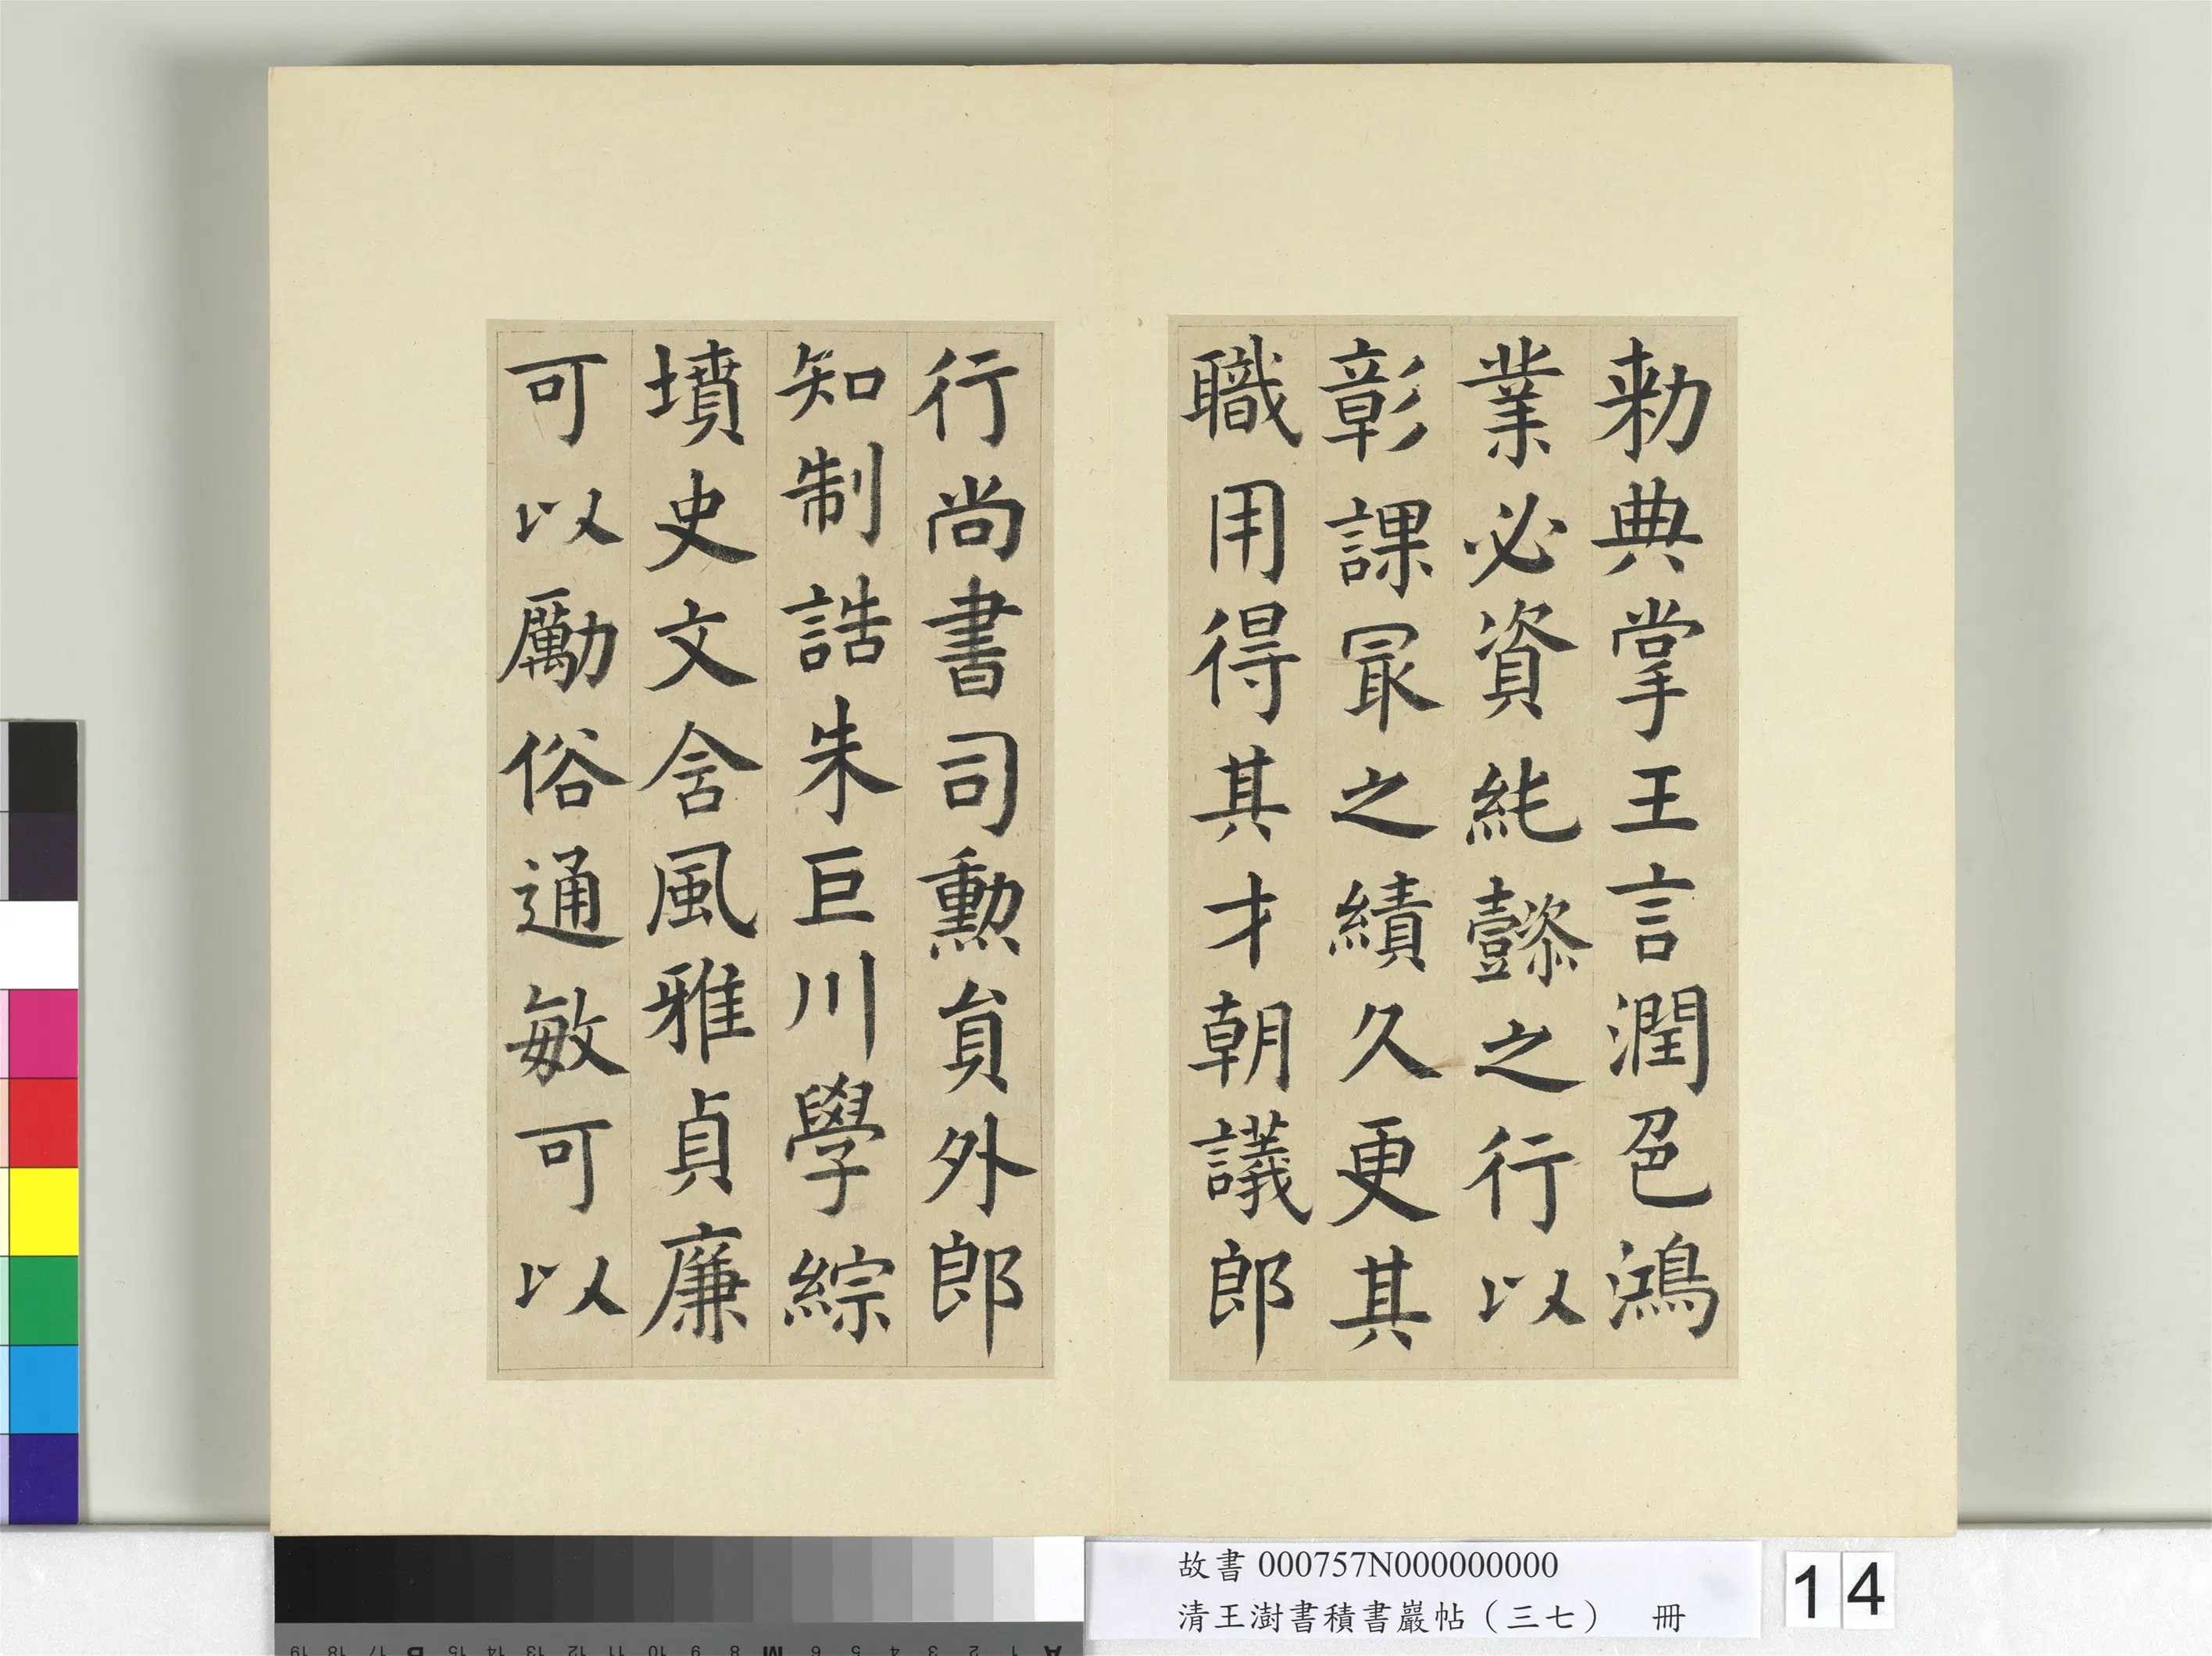 勑典掌王言潤色鴻
業必資純懿之行以
彰課冣之績久更其
職用得其才朝議郎
行尚書司勳貟外郎
知制誥朱巨川學綜
墳史文含風雅貞廉
可以勵俗通敏可以
故書 000757N000000000
清王澍書積書巖帖（三七） 冊
14
A 1 2 3 4 5 6 M 8 9 10 11 12 13 14 15 B 17 18 19